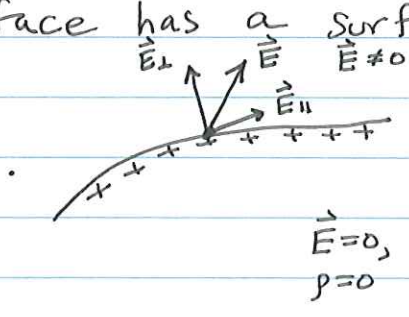 face has a surf
E⃗⊥ E⃗ E⃗≠0
E⃗∥
+ + + + + + + +
E⃗=0,
ρ=0